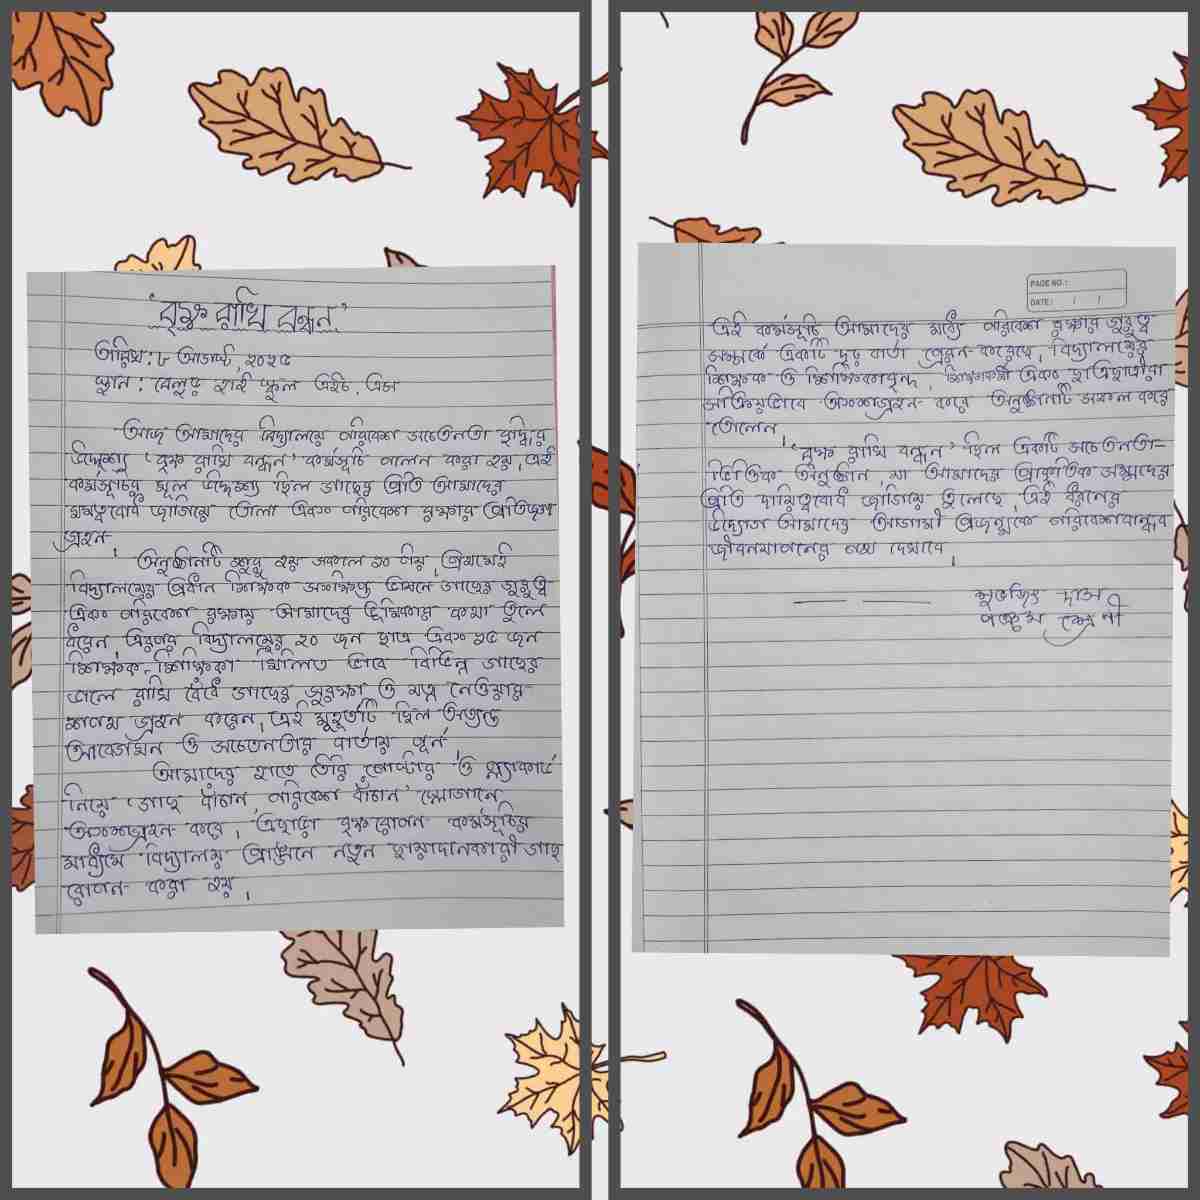 'বৃক্ষ রাখি বন্ধন'
তারিখ : ৮ আগস্ট, ২০২৫
স্থান : বেলুড় হাই স্কুল এইচ. এস
আজ আমাদের বিদ্যালয়ে পরিবেশ সচেতনতা বৃদ্ধির
উদ্দেশ্যে 'বৃক্ষ রাখি বন্ধন' কর্মসূচি পালন করা হয়। এই
কর্মসূচির মূল উদ্দেশ্য ছিল গাছের প্রতি আমাদের
মমত্ববোধ জাগিয়ে তোলা এবং পরিবেশ রক্ষার প্রতিজ্ঞা
গ্রহন।
অনুষ্ঠানটি শুরু হয় সকাল ১০ টায়। প্রথমেই
বিদ্যালয়ের প্রধান শিক্ষক সংক্ষিপ্ত ভাষনে গাছের গুরুত্ব
এবং পরিবেশ রক্ষায় আমাদের ভূমিকার কথা তুলে
ধরেন। এরপর বিদ্যালয়ের ২০ জন ছাত্র এবং ১৫ জন
শিক্ষক-শিক্ষিকা মিলিত ভাবে বিভিন্ন গাছের
ডালে রাখি বেঁধে গাছের সুরক্ষা ও যত্ন নেওয়ার
শপথ গ্রহন করেন। এই মুহূর্তটি ছিল অত্যন্ত
আবেগঘন ও সচেতনতার বার্তায় পূর্ন।
আমাদের হাতে তৈরি পোস্টার ও প্ল্যাকার্ড
নিয়ে 'গাছ বাঁচান, পরিবেশ বাঁচান' স্লোগানে
অংশগ্রহন করে। এছাড়া বৃক্ষরোপন কর্মসূচির
মাধ্যমে বিদ্যালয় প্রাঙ্গনে নতুন ছায়াদানকারী গাছ
রোপন করা হয়।
PAGE NO.:
DATE: / /
এই কর্মসূচি আমাদের মধ্যে পরিবেশ রক্ষার গুরুত্ব
সম্পর্কে একটি দৃঢ় বার্তা প্রেরন করেছে। বিদ্যালয়ের
শিক্ষক ও শিক্ষিকাবৃন্দ, শিক্ষাকর্মী এবং ছাত্রছাত্রীরা
সক্রিয়ভাবে অংশগ্রহন করে অনুষ্ঠানটি সফল করে
তোলেন।
'বৃক্ষ রাখি বন্ধন' ছিল একটি সচেতনতা-
ভিত্তিক অনুষ্ঠান, যা আমাদের প্রাকৃতিক সম্পদের
প্রতি দায়িত্ববোধ জাগিয়ে তুলেছে। এই ধরনের
উদ্যোগ আমাদের আগামী প্রজন্মকে পরিবেশবান্ধব
জীবনযাপনের পথ দেখাবে।
শুভজিৎ দাস
পঞ্চম শ্রেণী